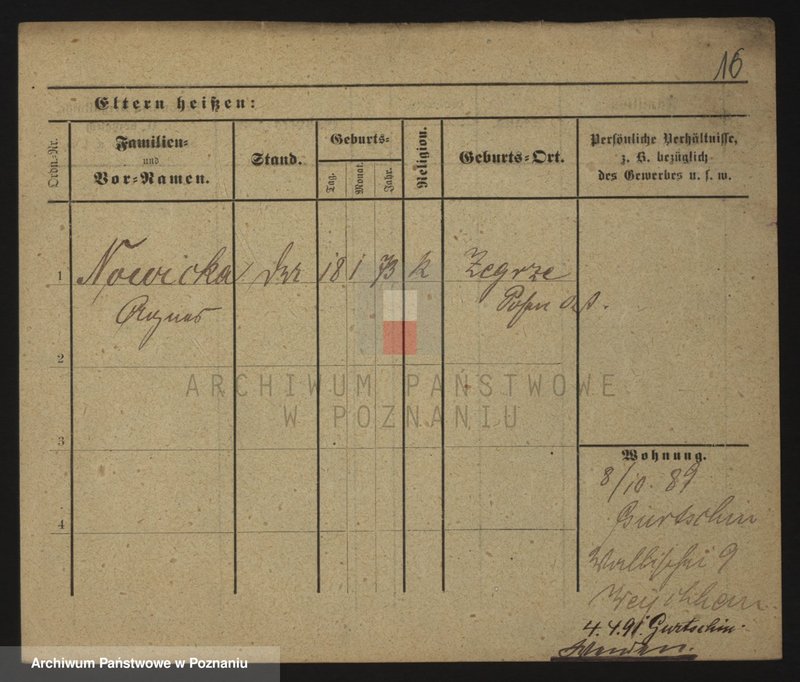 16
Eltern heißen:
Ordn.-Nr.
Familien-
und
Vor-Namen.
Stand.
Geburts-
Tag.
Monat.
Jahr.
Religion.
Geburts-Ort.
Persönliche Verhältnisse,
z. B. bezüglich
des Gewerbes u. s. w.
1
Nowicka 18 1 73 k Zegrze
Agnes Posen Ost.
2
ARCHIWUM PAŃSTWOWE
W POZNANIU
3
Wohnung.
8/10. 89
Gurtschin
4
Wallischei 9
4.4.91. Gurtschin.
Archiwum Państwowe w Poznaniu